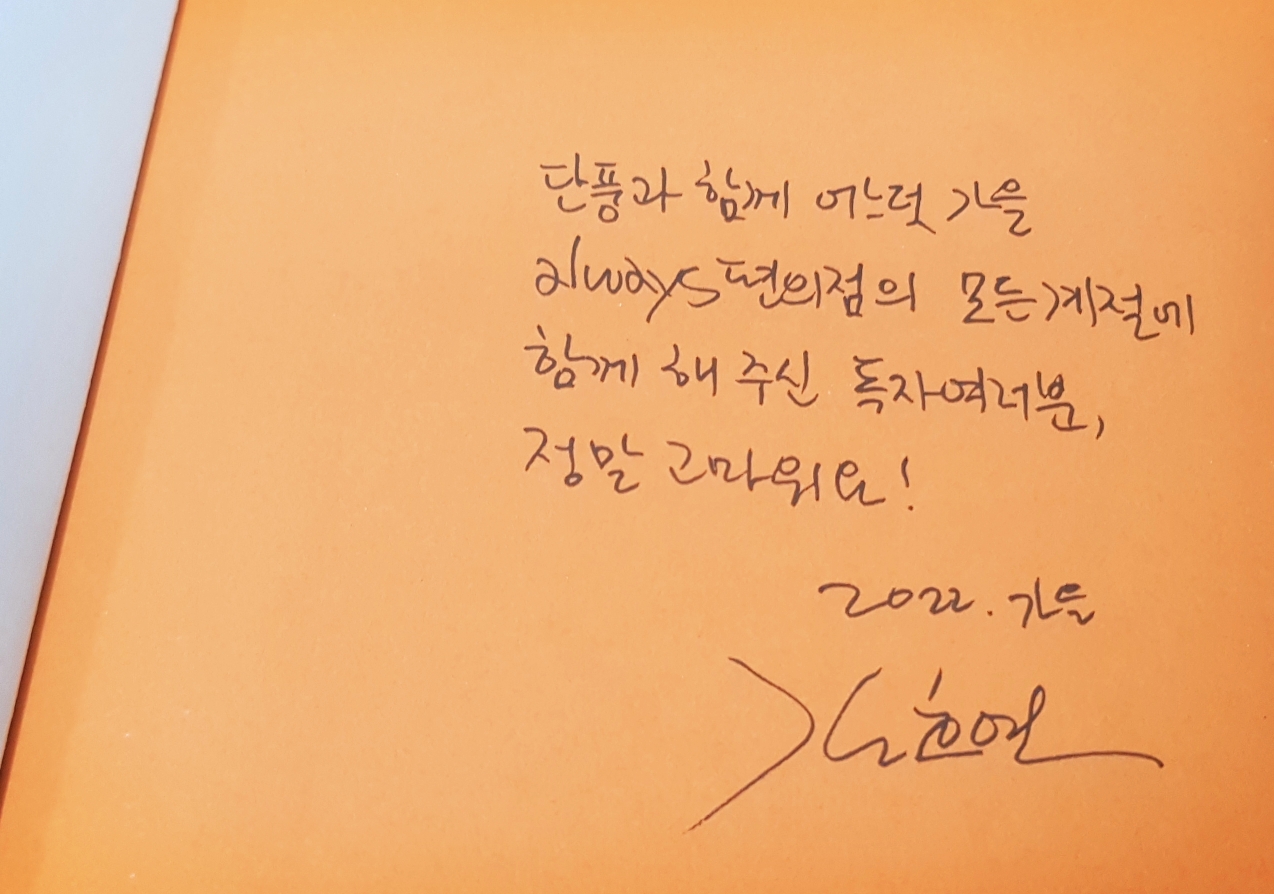 단풍과 함께 어느덧 가을
always편의점의 모든계절에
함께 해 주신 독자여러분,
정말 고마워요!
2022. 가을
김호연